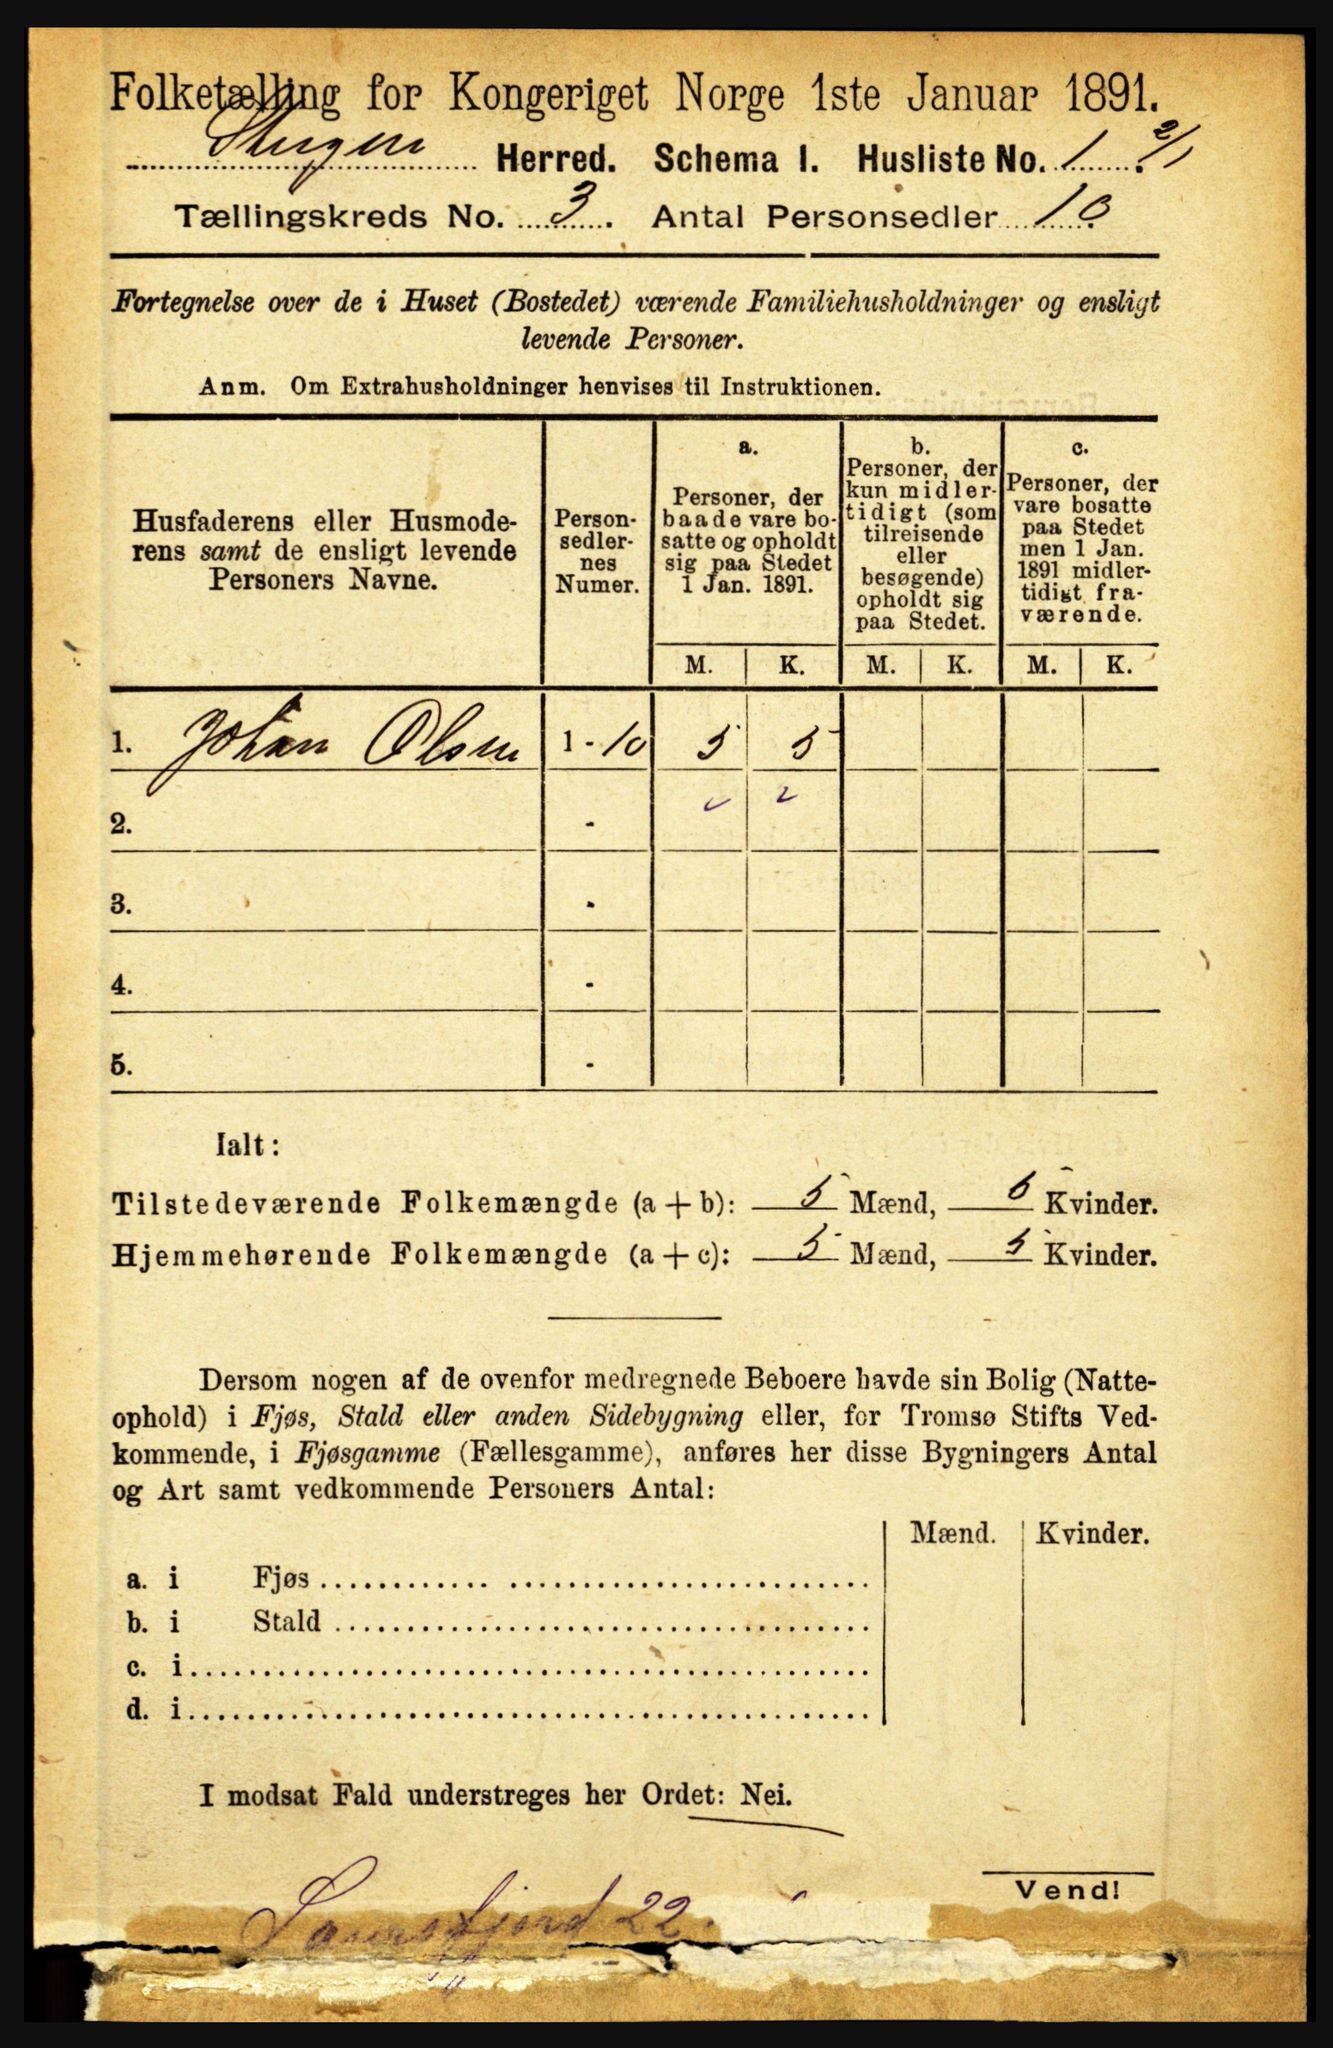 Folketælling for Kongeriget Norge 1ste Januar 1891.
Herred. Schema I. Husliste No. 1. 2/1
Tællingskreds No. 3. Antal Personsedler 10
Fortegnelse over de i Huset (Bostedet) værende Familiehusholdninger og ensligt
levende Personer.
Anm. Om Extrahusholdninger henvises til Instruktionen.
Husfaderens eller Husmode-
rens samt de ensligt levende
Personers Navne.
Person-
sedler-
nes
Numer.
a.
Personer, der
baade vare bo-
satte og opholdt
sig paa Stedet
1 Jan. 1891.
b.
Personer, der
kun midler-
tidigt (som
tilreisende
eller
besøgende)
opholdt sig
paa Stedet.
c.
Personer, der
vare bosatte
paa Stedet
men 1 Jan.
1891 midler-
tidigt fra-
værende.
M. K. M. K. M. K.
1. Johan Olsen 1 - 10 5 5
2. -
3. -
4. -
5. -
Ialt:
Tilstedeværende Folkemængde (a + b): 5 Mænd, 5 Kvinder.
Hjemmehørende Folkemængde (a + c): 5 Mænd, 5 Kvinder.
Dersom nogen af de ovenfor medregnede Beboere havde sin Bolig (Natte-
ophold) i Fjøs, Stald eller anden Sidebygning eller, for Tromsø Stifts Ved-
kommende, i Fjøsgamme (Fællesgamme), anføres her disse Bygningers Antal
og Art samt vedkommende Personers Antal:
Mænd. Kvinder.
a. i Fjøs
b. i Stald
c. i
d. i
I modsat Fald understreges her Ordet: Nei.
Vend!
22.